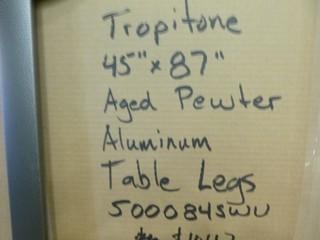 Tropitone
45" x 87"
Aged Pewter
Aluminum
Table Legs
500084SWU